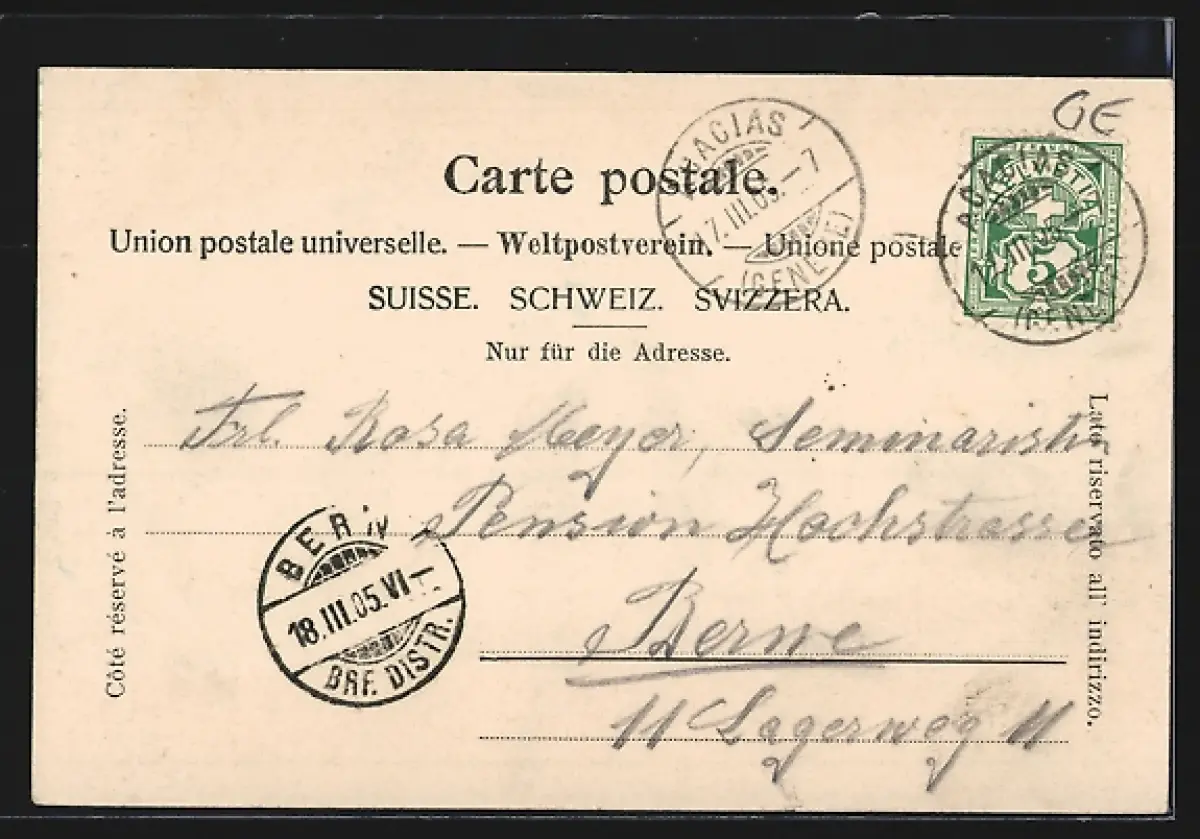 GE
Carte postale.
ACACIAS
17.III.05.–7
(GENÈVE)
ACACIAS
HELVETIA
III.05
5
(GENÈVE)
Union postale universelle. — Weltpostverein. — Unione postale
SUISSE. SCHWEIZ. SVIZZERA.
Nur für die Adresse.
Côté réservé à l'adresse.
Frl. Rosa Meyer, Seminaristin
Pension Hochstrasser
Berne
11 Lagerweg 11
BERN
18.III.05.VI–
BRF. DISTR.
Lato riservato all' indirizzo.